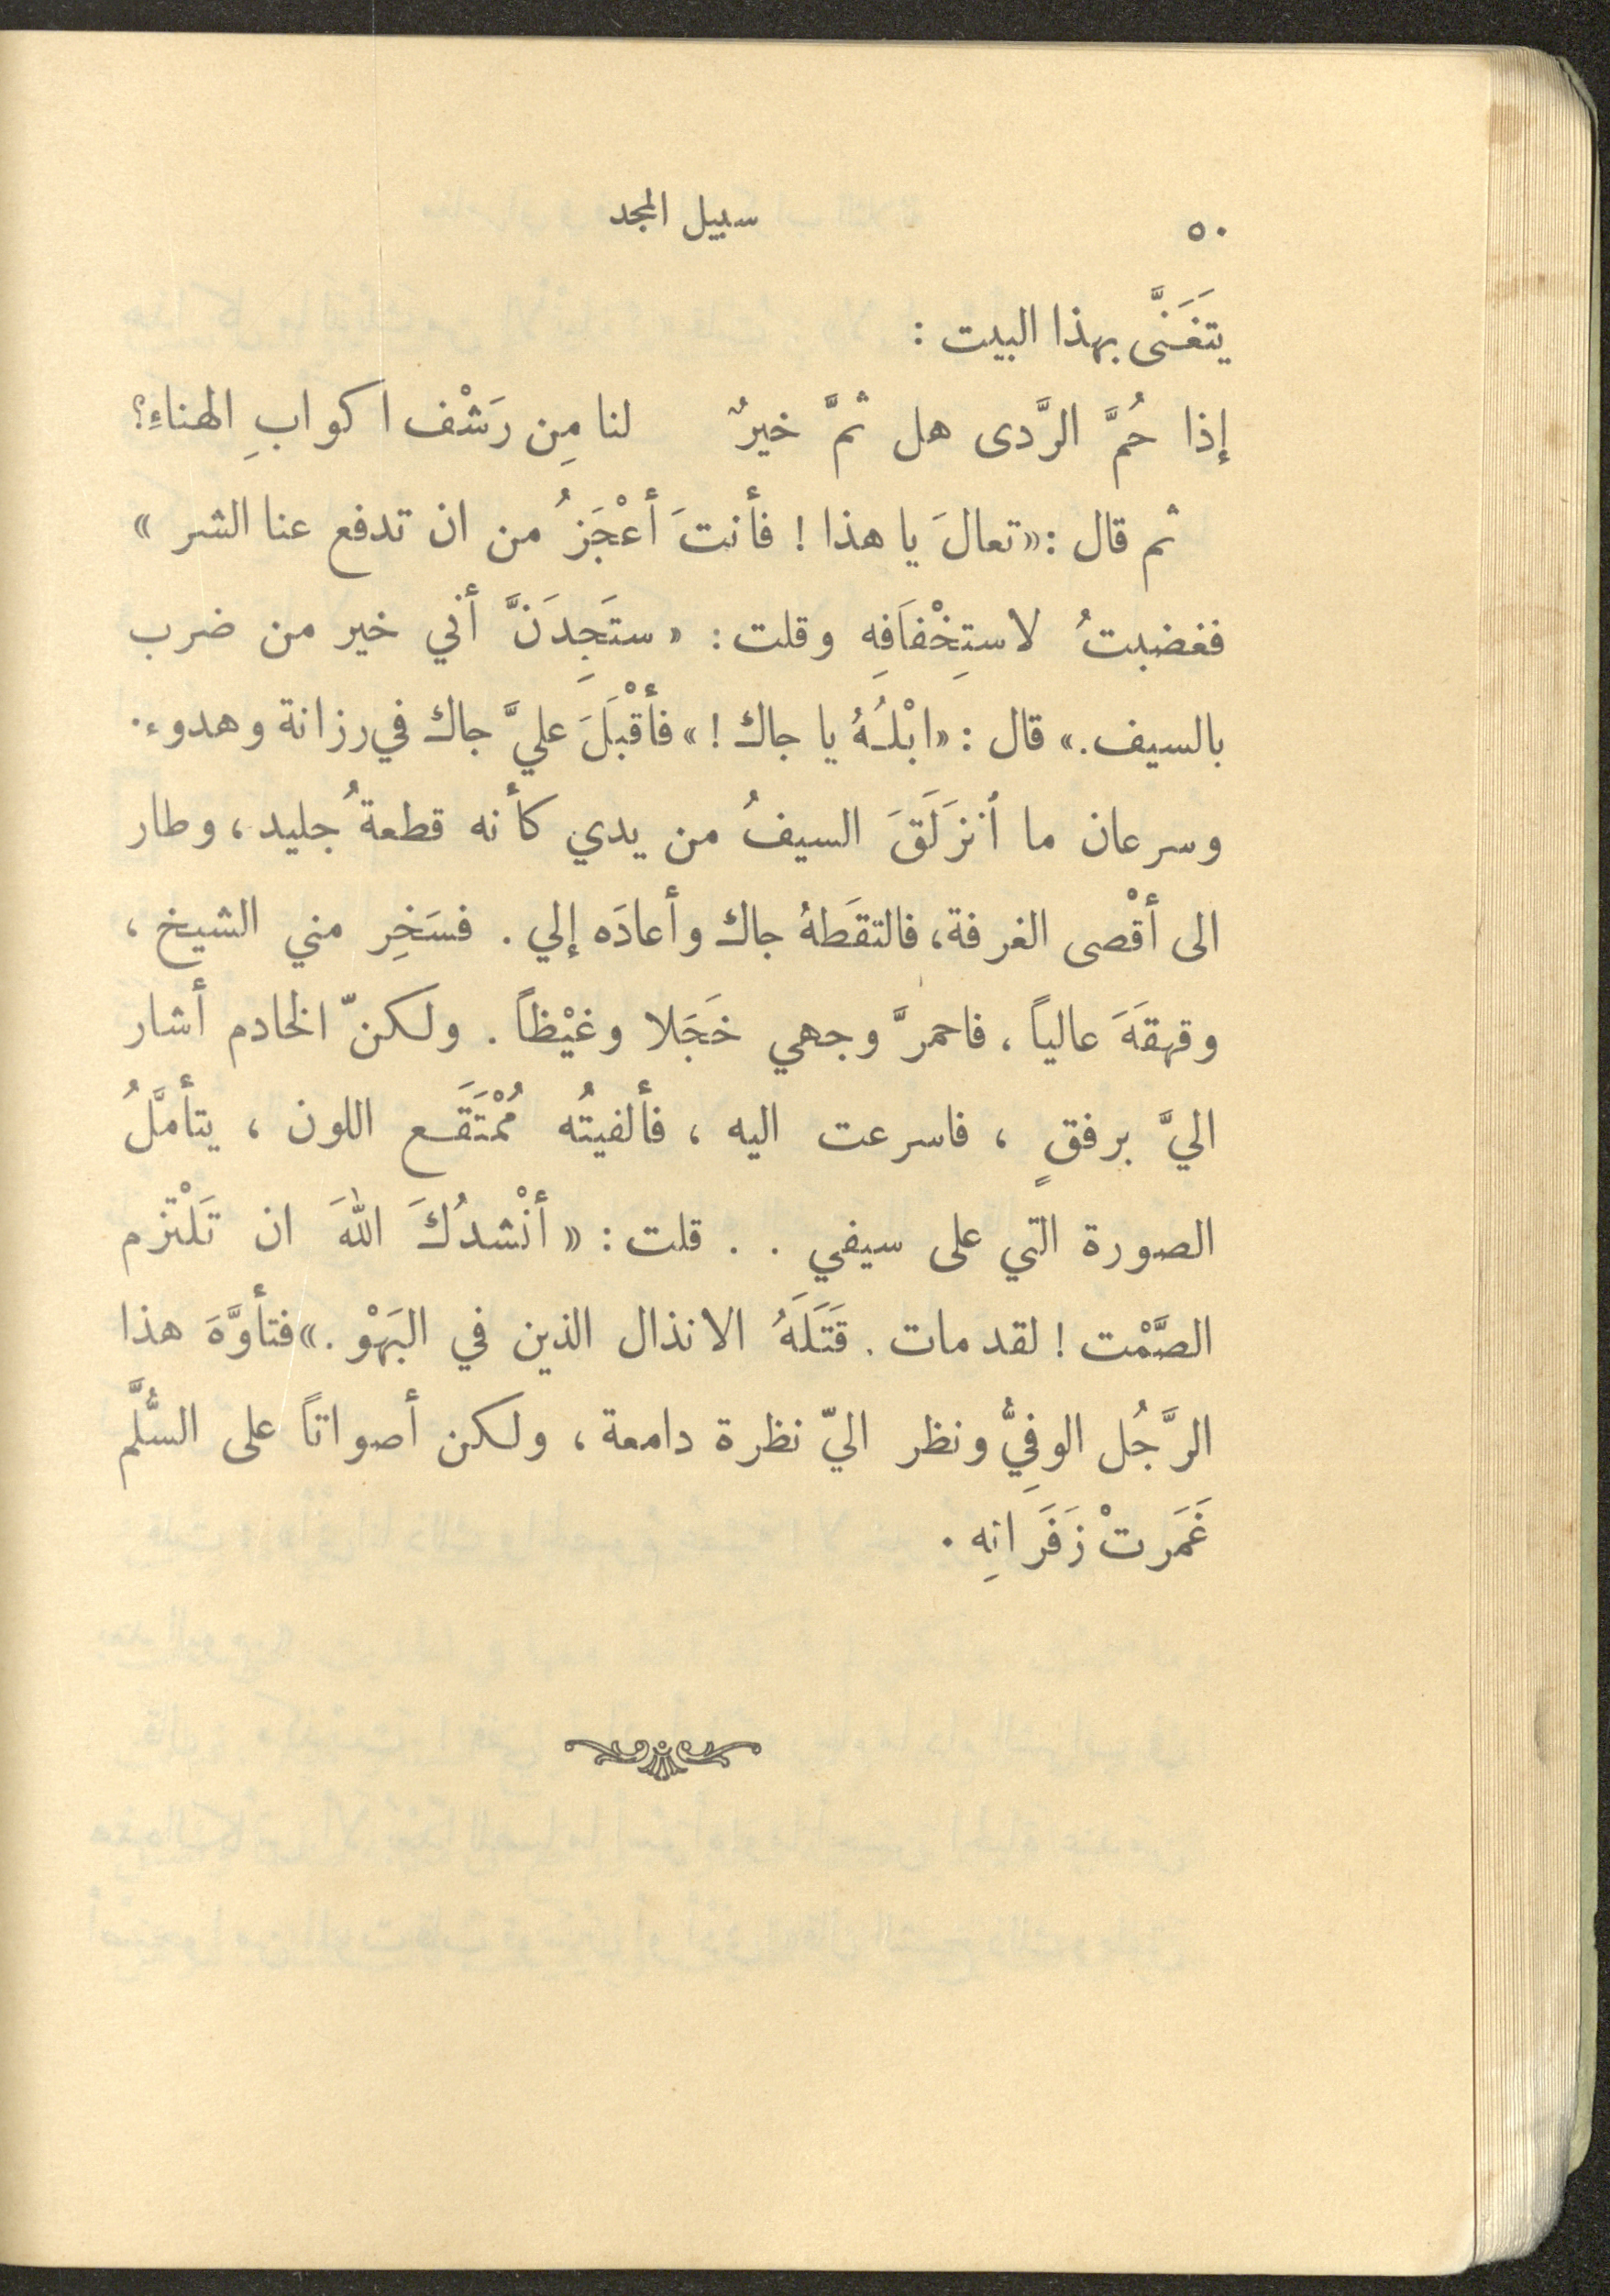 ٥٠ سبيل المجد
يتَغَنَّى بهذا البيت :
إذا حُمَّ الرَّدى هل ثمَّ خيرٌ لنا مِن رَشْف اكوابِ الهناءِ؟
ثم قال : «تعالَ يا هذا ! فأنتَ أعْجَزُ من ان تدفع عنا الشر »
فغضبتُ لاستِخْفَافِه وقلت : « ستَجِدَنَّ أني خير من ضرب
بالسيف .» قال : «ابْلُهُ يا جاك ! » فأقْبَلَ عليَّ جاك في رزانة وهدوء.
وسرعان ما أنزَلَقَ السيفُ من يدي كأنه قطعةُ جليد ، وطار
الى أقْصى الغرفة، فالتقَطهُ جاك وأعادَه إلي . فسَخِر مني الشيخ ،
وقهقهَ عالياً ، فاحمرَّ وجهي خَجَلا وغيْظاً . ولكنّ الخادم أشار
اليَّ برفقٍ ، فاسرعت اليه ، فألفيتُه مُمْتَقَع اللون ، يتأمَّلُ
الصورة التي على سيفي . . قلت : « أنْشدُكَ اللهَ ان تَلْتزم
الصَّمْت ! لقد مات . قَتَلَهُ الانذال الذين في البَهْو .» فتأوَّهَ هذا
الرَّجُل الوفِيُّ ونظر اليّ نظرة دامعة ، ولكن أصواتاً على السُّلَّم
غَمَرتْ زَفَراتِه .